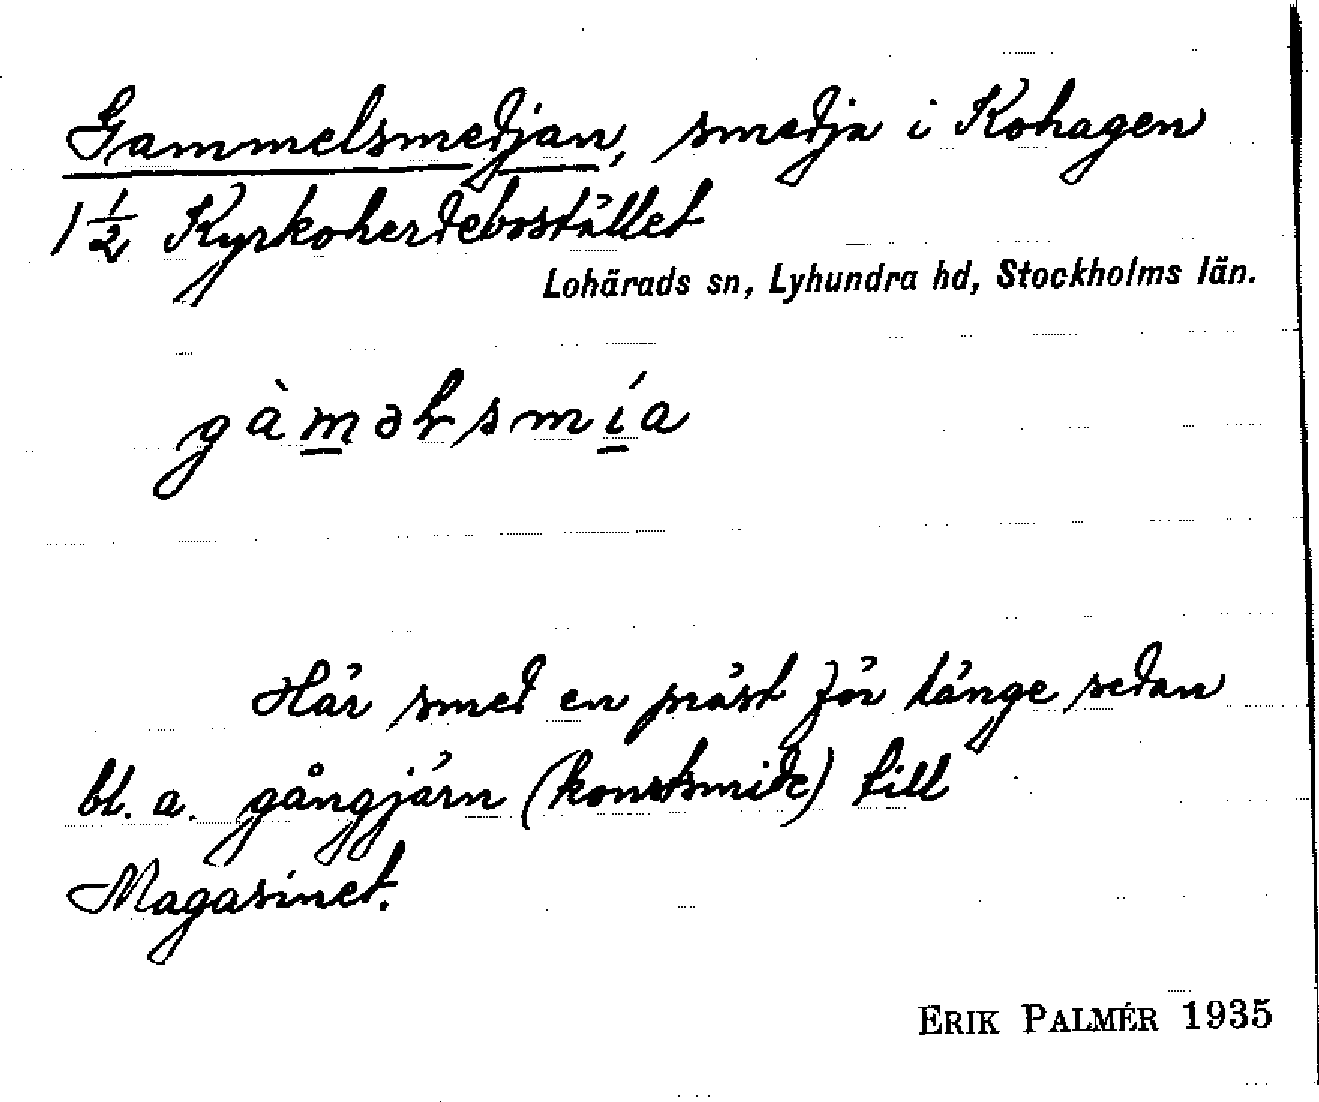 Gammelsmedjan, smedja i Kohagen
1 ½ Kyrkoherdebostället
Lohärads sn, Lyhundra hd, Stockholms län.
gàm̲əɫsmí̲a
Här smed en präst för länge sedan
bl. a. gångjärn (konstsmide) till
Magasinet.
ERIK PALMÉR 1935